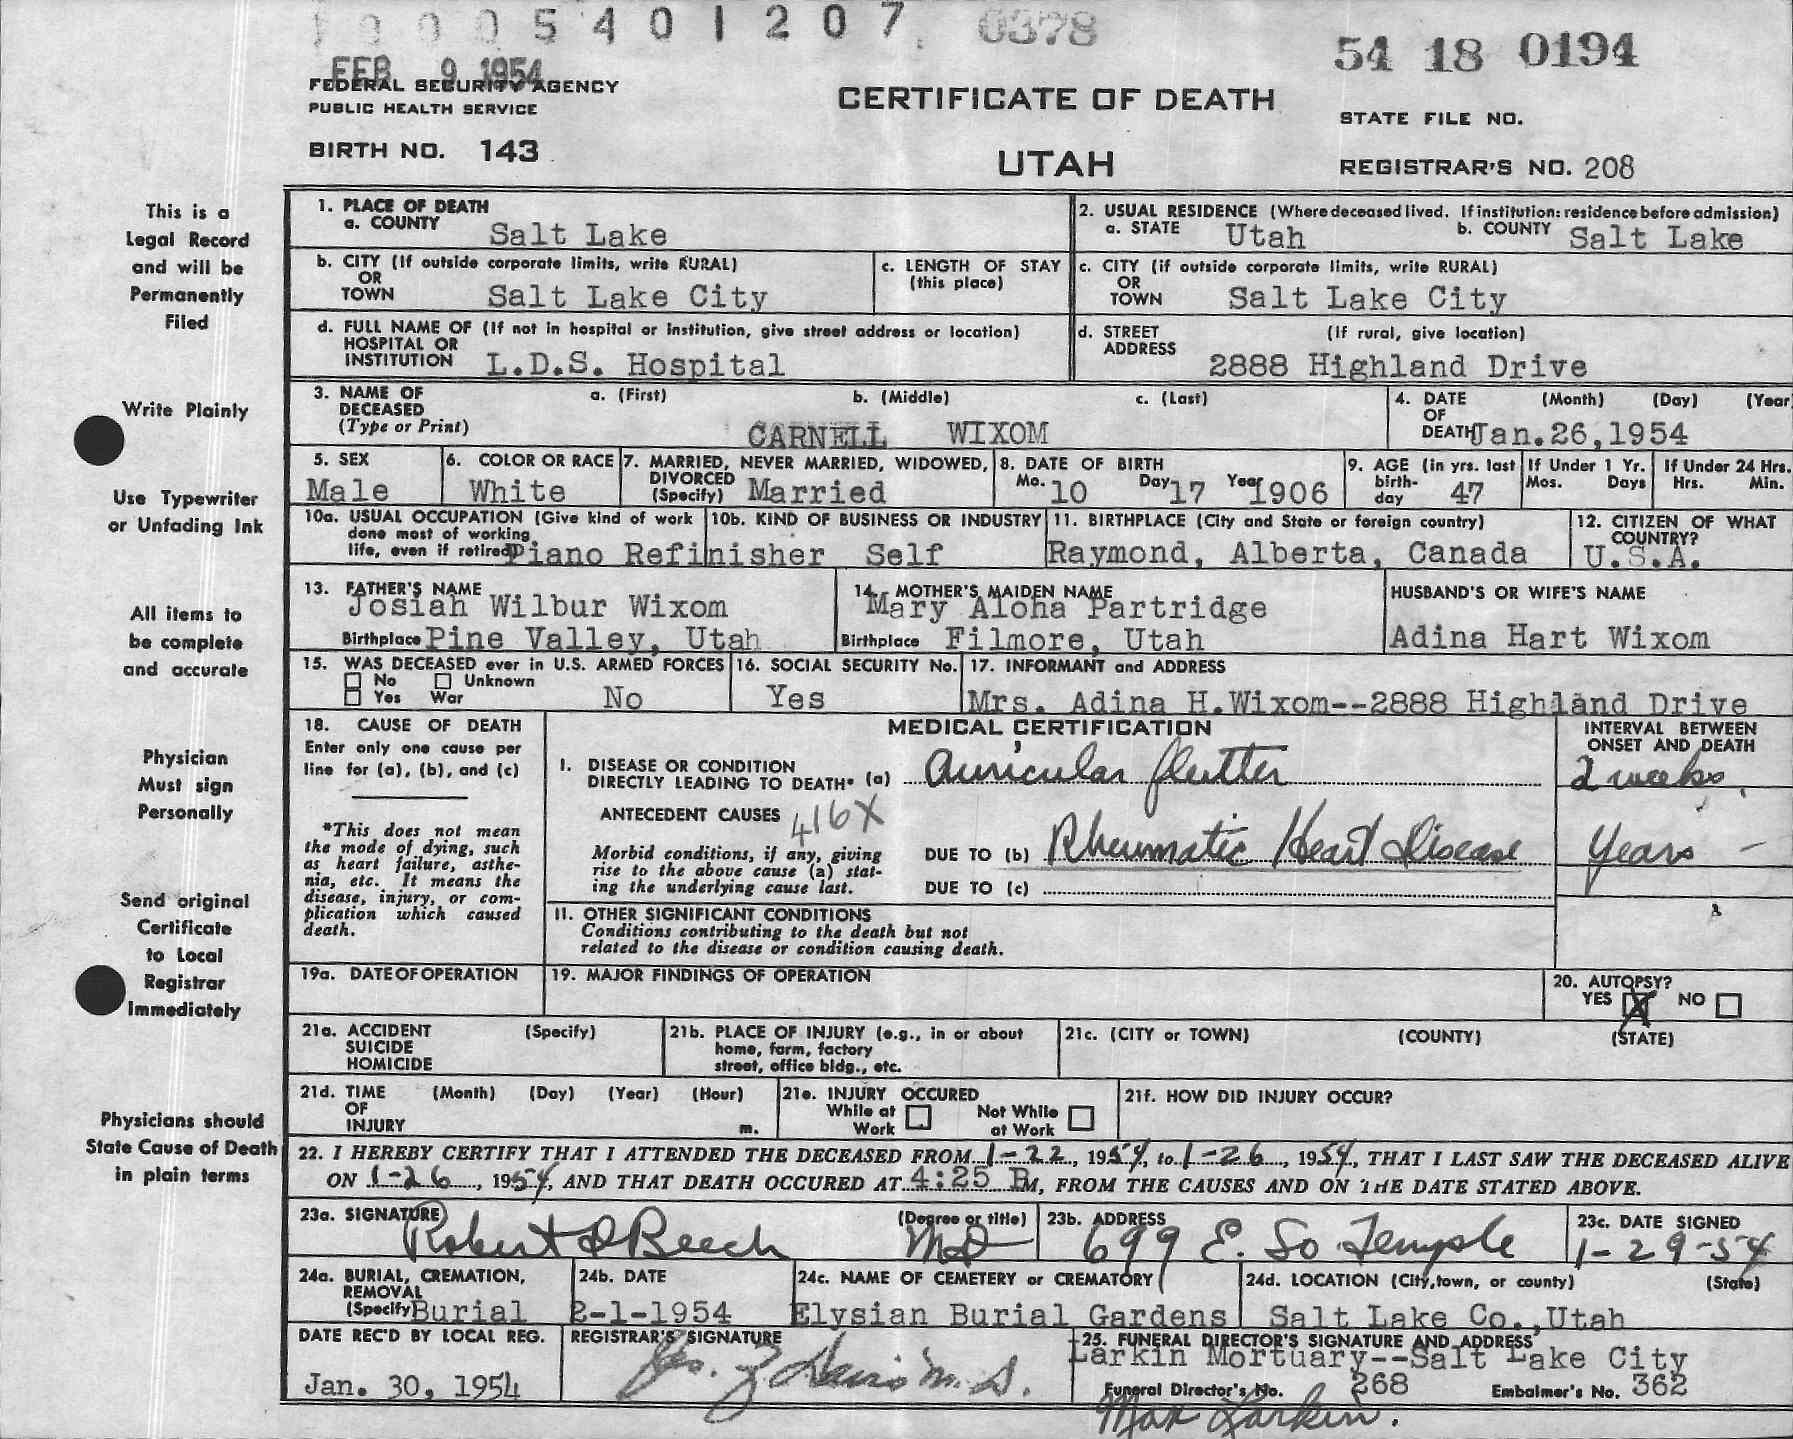 5 4 0 1 2 0 7 0378
54 18 0194
FEB 9 1954
FEDERAL SECURITY AGENCY
PUBLIC HEALTH SERVICE
CERTIFICATE OF DEATH
STATE FILE NO.
BIRTH NO. 143
UTAH
REGISTRAR'S NO. 208
This is a
Legal Record
and will be
Permanently
Filed
Write Plainly
Use Typewriter
or Unfading Ink
All items to
be complete
and accurate
Physician
Must sign
Personally
Send original
Certificate
to Local
Registrar
Immediately
Physicians should
State Cause of Death
in plain terms
1. PLACE OF DEATH
a. COUNTY Salt Lake
2. USUAL RESIDENCE (Where deceased lived. If institution: residence before admission)
a. STATE Utah b. COUNTY Salt Lake
b. CITY (If outside corporate limits, write RURAL)
OR
TOWN Salt Lake City
c. LENGTH OF STAY
(this place)
c. CITY (if outside corporate limits, write RURAL)
OR
TOWN Salt Lake City
d. FULL NAME OF (If not in hospital or institution, give street address or location)
HOSPITAL OR
INSTITUTION L.D.S. Hospital
d. STREET (If rural, give location)
ADDRESS
2888 Highland Drive
3. NAME OF a. (First) b. (Middle) c. (Last)
DECEASED
(Type or Print) CARNELL WIXOM
4. DATE (Month) (Day) (Year
OF
DEATH Jan.26,1954
5. SEX
Male
6. COLOR OR RACE
White
7. MARRIED, NEVER MARRIED, WIDOWED,
DIVORCED
(Specify) Married
8. DATE OF BIRTH
Mo. 10 Day 17 Year 1906
9. AGE (in yrs. last
birth-
day 47
If Under 1 Yr.
Mos. Days
If Under 24 Hrs.
Hrs. Min.
10a. USUAL OCCUPATION (Give kind of work
done most of working
life, even if retired) Piano Refinisher
10b. KIND OF BUSINESS OR INDUSTRY
Self
11. BIRTHPLACE (City and State or foreign country)
Raymond, Alberta, Canada
12. CITIZEN OF WHAT
COUNTRY?
U.S.A.
13. FATHER'S NAME
Josiah Wilbur Wixom
Birthplace Pine Valley, Utah
14. MOTHER'S MAIDEN NAME
Mary Aloha Partridge
Birthplace Filmore, Utah
HUSBAND'S OR WIFE'S NAME
Adina Hart Wixom
15. WAS DECEASED ever in U.S. ARMED FORCES
No Unknown
Yes War No
16. SOCIAL SECURITY No.
Yes
17. INFORMANT and ADDRESS
Mrs. Adina H.Wixom--2888 Highland Drive
18. CAUSE OF DEATH
Enter only one cause per
line for (a), (b), and (c)
*This does not mean
the mode of dying, such
as heart failure, asthe-
nia, etc. It means the
disease, injury, or com-
plication which caused
death.
MEDICAL CERTIFICATION
INTERVAL BETWEEN
ONSET AND DEATH
I. DISEASE OR CONDITION
DIRECTLY LEADING TO DEATH* (a) Auricular flutter 2 weeks
ANTECEDENT CAUSES 416X
Morbid conditions, if any, giving
rise to the above cause (a) stat-
ing the underlying cause last.
DUE TO (b) Rheumatic Heart Disease Years -
DUE TO (c)
II. OTHER SIGNIFICANT CONDITIONS
Conditions contributing to the death but not
related to the disease or condition causing death.
19a. DATE OF OPERATION
19. MAJOR FINDINGS OF OPERATION
20. AUTOPSY?
YES X NO
21a. ACCIDENT (Specify)
SUICIDE
HOMICIDE
21b. PLACE OF INJURY (e.g., in or about
home, farm, factory
street, office bldg., etc.
21c. (CITY or TOWN) (COUNTY) (STATE)
21d. TIME (Month) (Day) (Year) (Hour)
OF
INJURY m.
21e. INJURY OCCURED
While at Not While
Work at Work
21f. HOW DID INJURY OCCUR?
22. I HEREBY CERTIFY THAT I ATTENDED THE DECEASED FROM 1-22, 1954, to 1-26, 1954, THAT I LAST SAW THE DECEASED ALIVE
ON 1-26, 1954, AND THAT DEATH OCCURED AT 4:25 P.M, FROM THE CAUSES AND ON THE DATE STATED ABOVE.
23a. SIGNATURE (Degree or title)
Robert D Beech MD
23b. ADDRESS
699 E. So Temple
23c. DATE SIGNED
1-29-54
24a. BURIAL, CREMATION,
REMOVAL
(Specify Burial
24b. DATE
2-1-1954
24c. NAME OF CEMETERY or CREMATORY
Elysian Burial Gardens
24d. LOCATION (City,town, or county) (State)
Salt Lake Co.,Utah
DATE REC'D BY LOCAL REG.
Jan. 30, 1954
REGISTRAR'S SIGNATURE
Davis M.D.
25. FUNERAL DIRECTOR'S SIGNATURE AND ADDRESS
Larkin Mortuary--Salt Lake City
Funeral Director's No. 268 Embalmer's No. 362
Max Larkin.